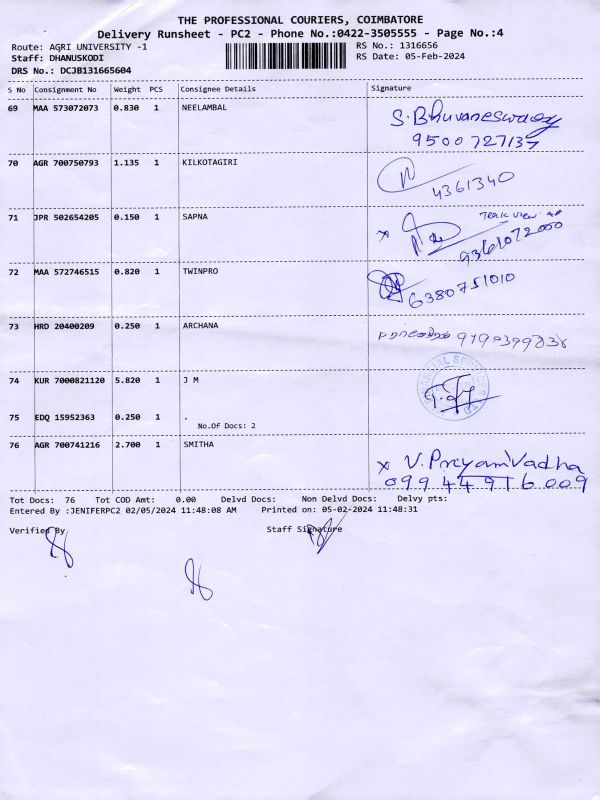 THE PROFESSIONAL COURIERS, COIMBATORE
Delivery Runsheet - PC2 - Phone No.:0422-3505555 - Page No.:4
Route: AGRI UNIVERSITY -1
RS No.: 1316656
Staff: DHANUSKODI
RS Date: 05-Feb-2024
DRS No.: DCJB131665604
S No Consignment No Weight PCS Consignee Details Signature
69 MAA 573072073 0.830 1 NEELAMBAL
S. Bhuvaneswary
9500727137
70 AGR 700750793 1.135 1 KILKOTAGIRI
4361340
71 JPR 502654205 0.150 1 SAPNA
x
9361072000
72 MAA 572746515 0.820 1 TWINPRO
6380751010
73 HRD 20400209 0.250 1 ARCHANA
74 KUR 7000821120 5.820 1 J M
75 EDQ 15952363 0.250 1 .
No.Of Docs: 2
76 AGR 700741216 2.700 1 SMITHA
x V. PriyamVadha
09944916009
Tot Docs: 76 Tot COD Amt: 0.00 Delvd Docs: Non Delvd Docs: Delvy pts:
Entered By :JENIFERPC2 02/05/2024 11:48:08 AM Printed on: 05-02-2024 11:48:31
Verified By Staff Signature